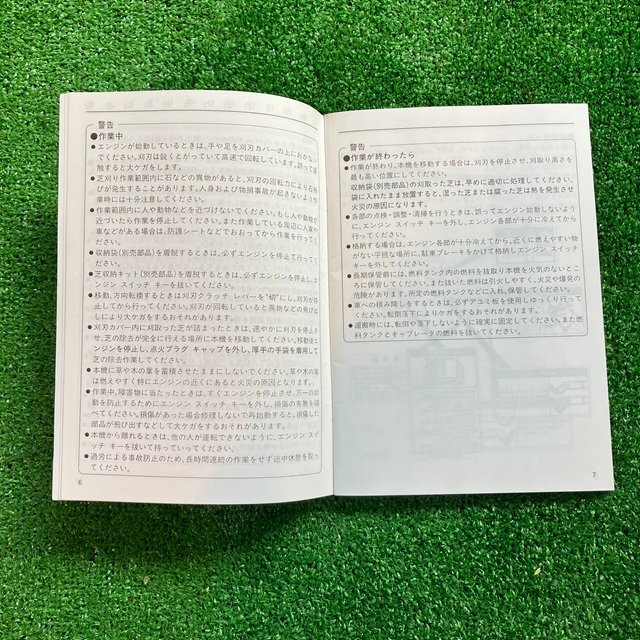 警告
●作業中
●エンジンが始動しているときは、手や足を刈刃カバーの上におかない
でください。刈刃は鋭くとがっていて高速で回転しています。誤って接
触すると大ケガをします。
●芝刈り作業範囲内に石などの異物があると、刈刃の回転力により石飛
びが発生することがあります。人身および物損事故が起きないよう作
業時には十分注意してください。
●作業範囲内に人や動物などを近づけないでください。もし人や動物が
近づいたら作業を停止してください。また作業している周辺に人家や
車などがある場合は、防護シートなどでおおってから作業を行ってく
ださい。
●収納袋(別売部品)を着脱するときは、必ずエンジンを停止して行って
ください。
●芝収納キット(別売部品)を着脱するときは、必ずエンジンを停止し、エ
ンジン スイッチ キーを抜いてください。
●移動、方向転換するときは刈刃クラッチ レバーを"切"にし、刈刃が停
止してから行ってください。刈刃が回転していると異物などの飛びに
より大ケガをするおそれがあります。
●刈刃カバー内に刈取った芝が詰まったときは、速やかに刈刃を停止さ
せ、芝の除去が完全に行える場所に本機を移動してください。移動後エ
ンジンを停止し、点火プラグ キャップを外し、厚手の手袋を着用して
芝の除去作業してください。
●本機に草や木の葉を蓄積させたままにしないでください。草や木の葉
は燃えやすく特にエンジンの近くにあると火災の原因となります。
●作業中、障害物に当たったときは、すぐエンジンを停止させ、万一の始
動を防止するためにエンジン スイッチ キーを外し、損傷の有無を調
べてください。損傷があった場合修理しないで再始動すると、損傷した
部品が飛び出すなどして大ケガをするおそれがあります。
●本機から離れるときは、他の人が運転できないように、エンジン スイ
ッチ キーを抜いて持っていってください。
●過労による事故防止のため、長時間連続の作業をせず途中休憩を取っ
てください。
6
警告
●作業が終わったら
●作業が終わり、本機を移動する場合は、刈刃を停止させ、刈取り高さを
最も高い位置にしてください。
●収納袋(別売部品)の刈取った芝は、早めに適切に処理してください。
袋に入れたまま放置すると、湿った芝または腐った芝は熱を発生させ
火災の原因になります。
●各部の点検・調整・清掃を行うときは、誤ってエンジン始動しないよう
に、エンジン スイッチ キーを外し、エンジン各部が十分に冷えてから
行ってください。
●格納する場合は、エンジン各部が十分冷えてから、近くに燃えやすい物
がない平坦な場所に、駐車ブレーキをかけて格納しエンジン スイッチ
キーを外してください。
●長期保管前には、燃料タンク内の燃料を抜取り本機を火気のないとこ
ろに保管してください。また抜いた燃料は引火しやすく、火災や爆発の
危険があります。所定の燃料タンクなどに入れ、保管してください。
●車への積み降しをするときは、必ずアユミ板を使用しゆっくり行って
ください。転倒落下によりケガをするおそれがあります。
●運搬時には、転倒や落下しないように確実に固定してください。また燃
料タンクとキャブレータの燃料を抜いてください。
7